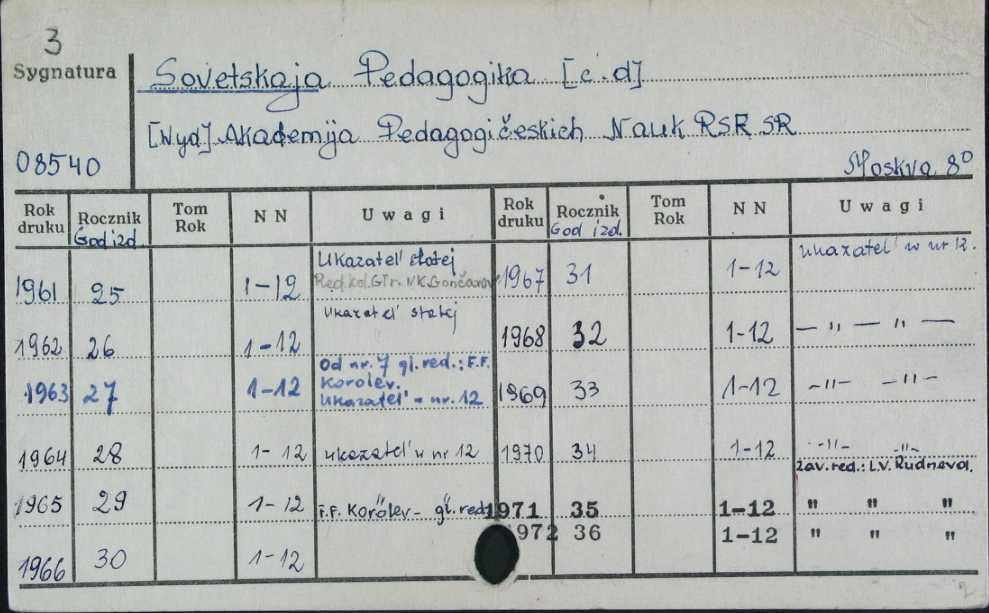 3
Sygnatura
Sovetskaja Pedagogika [c.d]
[Wyd] Akademija Pedagogičeskich Nauk RSFSR
08540
Moskva 8°
Rok druku Rocznik God izd. Tom Rok NN Uwagi Rok druku Rocznik God izd. Tom Rok NN Uwagi
1961 25 1-12 Ukazatel' statej
Red.kol. Gł.r. N.K. Gončarov
1967 31 1-12 Ukazatel' w nr 12.
1962 26 1-12 Ukazatel' statej
1968 32 1-12 — " — " —
1963 27 1-12 Od nr. 7 gl. red.: F.F.
Korolev.
Ukazatel' - nr. 12
1969 33 1-12 -"- -"-
1964 28 1-12 ukazatel' w nr 12
1970 34 1-12 -"- -"-
Zav. red.: L.V. Rudneva.
1965 29 1-12 F.F. Korölev - gł. red.
1971 35 1-12 " " "
1972 36 1-12 " " "
1966 30 1-12
2